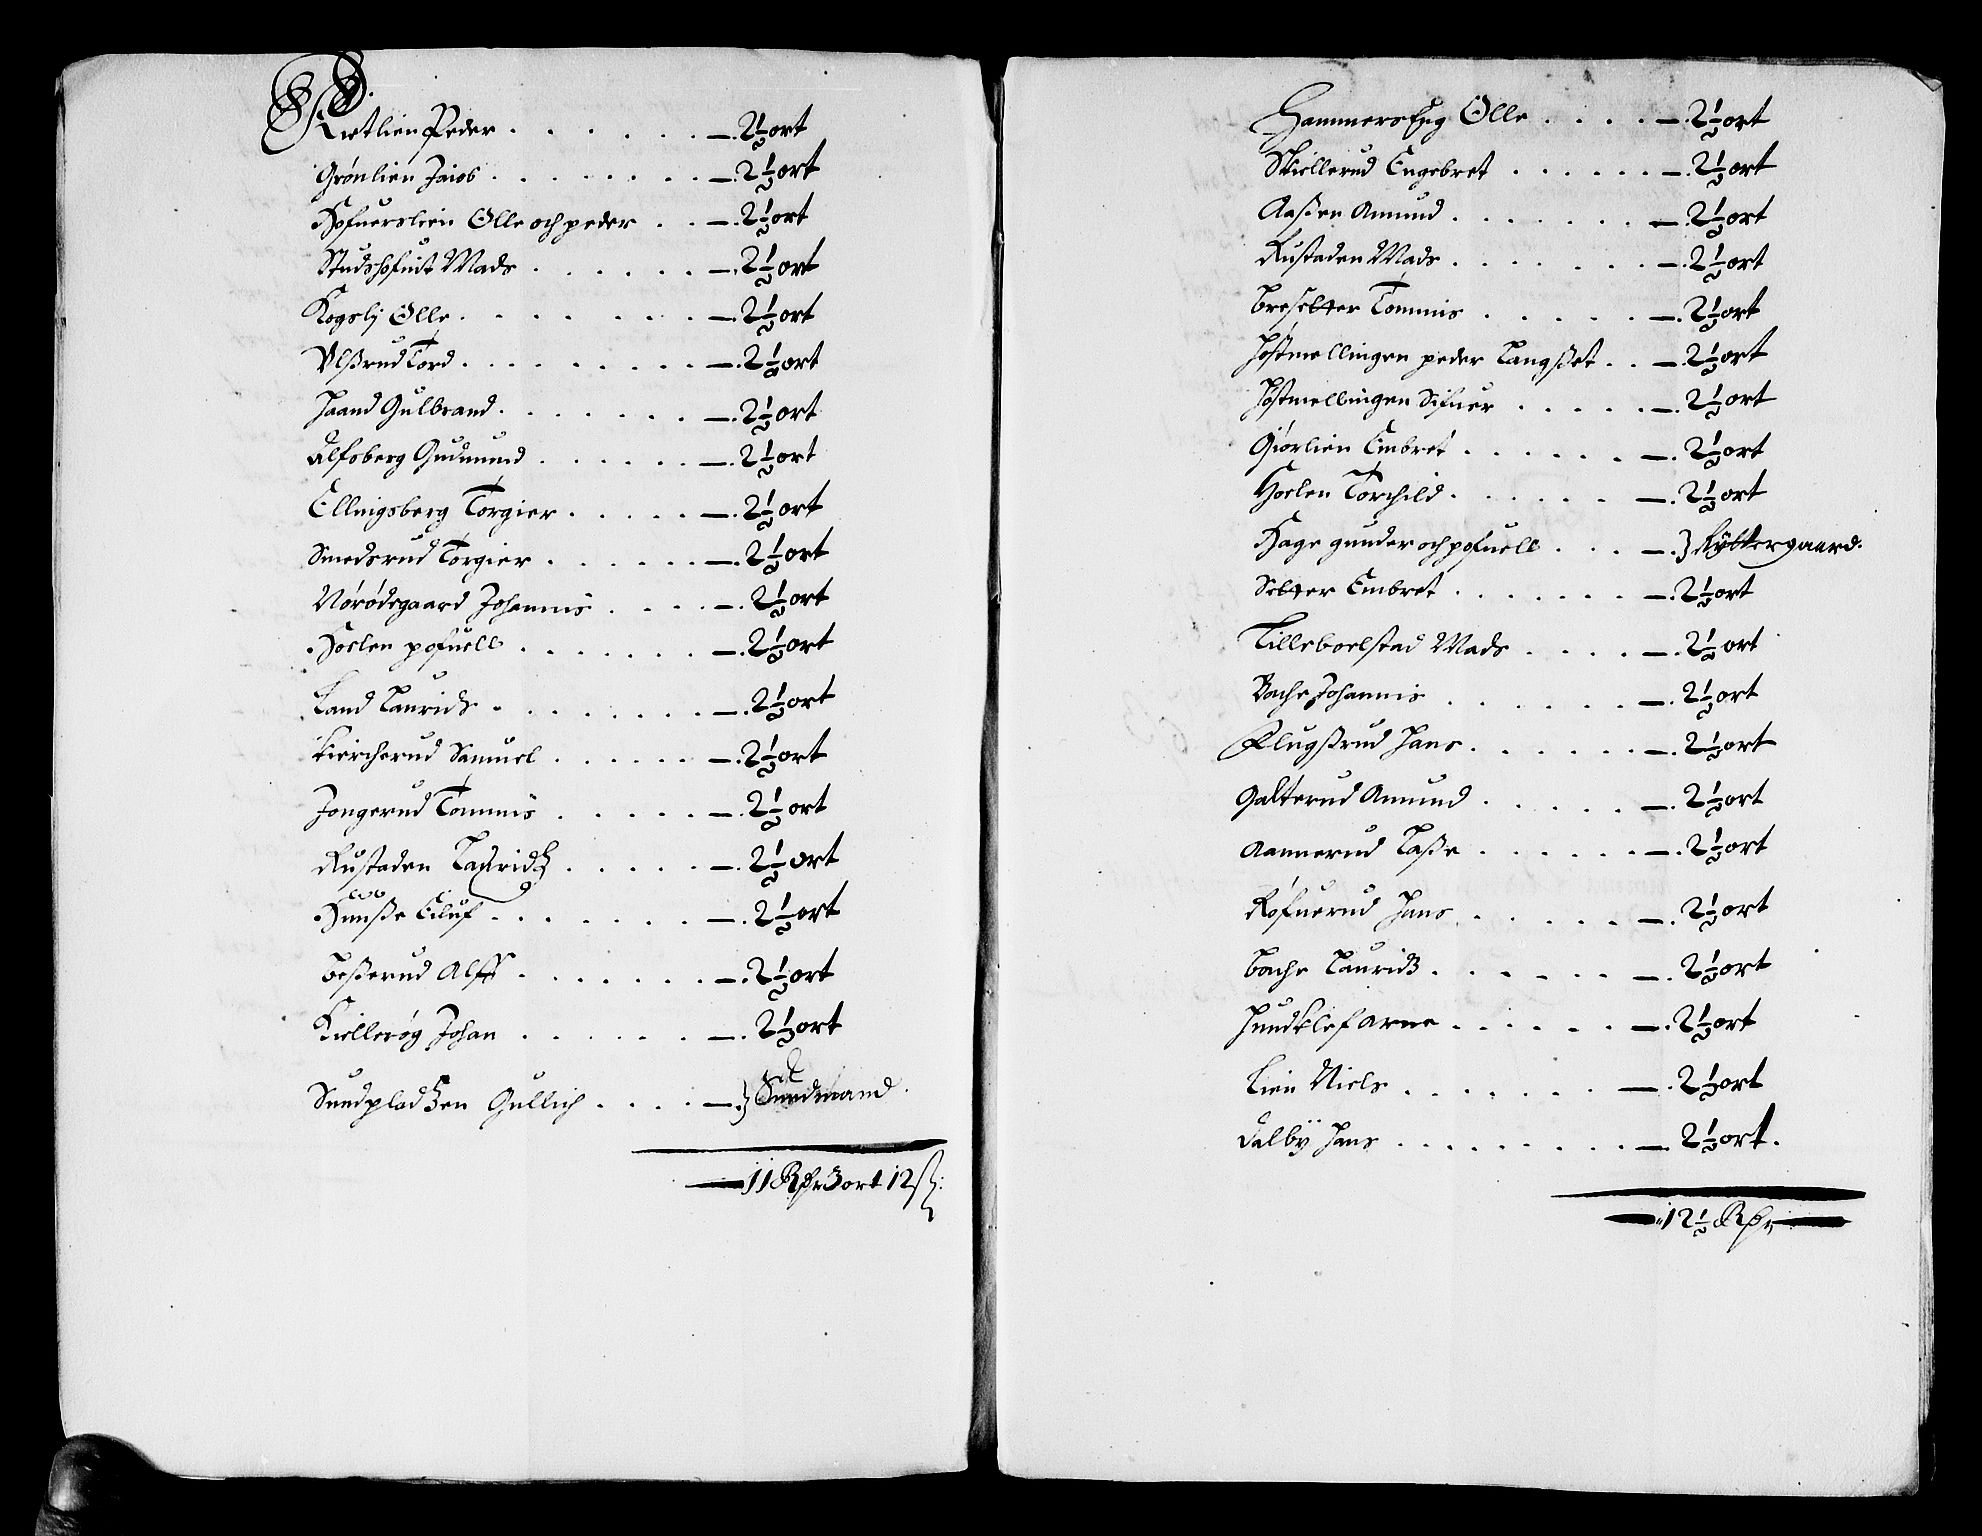 Kietlien Peder . . . . . . — 2½ ort
Grønlien Jaiob . . . . . . . — 2½ ort
Hofuerslien Olle och peder . . — 2½ ort
Studshofuit Mads . . . . . — 2½ ort
Kogslj Olle . . . . . . — 2½ ort
Ulßrud Tord . . . . . . . . — 2½ ort
Haand Gulbrand . . . . . . — 2½ ort
Alfsberg Gudmund . . . . . — 2½ ort
Ellingsberg Torgier . . . . . — 2½ ort
Smedsrud Torgier . . . . . — 2½ ort
Nørødegaard Johannis . . . . — 2½ ort
Hoelen pofuell . . . . . . — 2½ ort
Land Lauridz . . . . . . . — 2½ ort
Kiercherud Samuel . . . . . — 2½ ort
Jongerud Tommis . . . . . — 2½ ort
Rustaden Lauridz . . . . . — 2½ ort
Hunße Eiluf . . . . . . — 2½ ort
Beßerud Alff . . . . . . . — 2½ ort
Kiellerøg Johan . . . . . . — 2½ ort
Sundpladzen Gullich . . . . — } Sundmand
11 Rdr 3 ort 12 ß
Hammers Eng Olle . . . . — 2½ ort
Skiellerud Engebret . . . . . . — 2½ ort
Aaßen Amund . . . . . . — 2½ ort
Rustaden Mads . . . . . . — 2½ ort
Breseter Tommis . . . . . — 2½ ort
Høstmellingen peder Langßet . . — 2½ ort
Høstmellingen Sifuer . . . . . — 2½ ort
Giørlien Embret . . . . . . — 2½ ort
Hoelen Torchild . . . . . — 2½ ort
Hage gunder och pofuell . . . — } Ryttergaard
Setter Embret . . . . . . . — 2½ ort
Lilleboelstad Mads . . . . — 2½ ort
Bache Johannis . . . . . . — 2½ ort
Klugßrud Hans . . . . . . — 2½ ort
Galterud Amund . . . . . — 2½ ort
Aannerud Laße . . . . . . — 2½ ort
Røfuerud Hans . . . . . — 2½ ort
Bache Lauridz . . . . . . — 2½ ort
Hundklef Arne . . . . . . — 2½ ort
Lien Niels . . . . . . — 2½ ort
Dalby Hans . . . . . . . . . — 2½ ort.
12½ Rdr